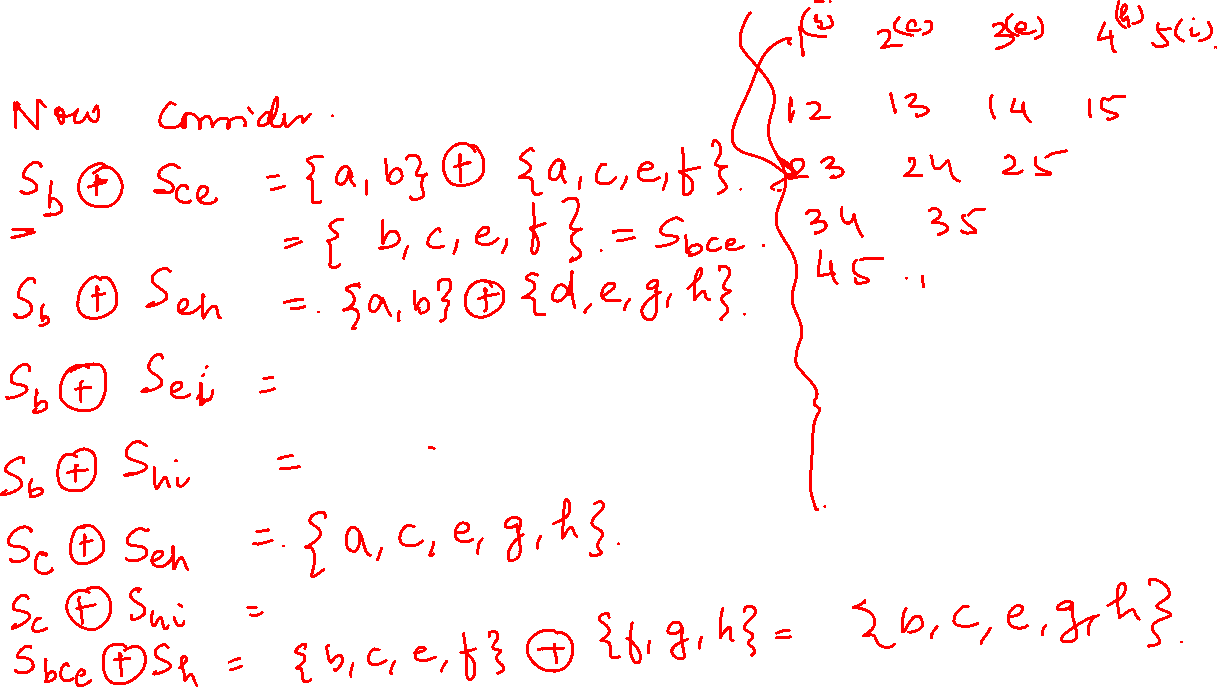 Now Consider.
S_b ⊕ S_ce = {a, b} ⊕ {a, c, e, f}.
= { b, c, e, f }. = S_bce.
S_b ⊕ S_eh =. {a, b} ⊕ {d, e, g, h}.
S_b ⊕ S_ei =
S_b ⊕ S_hi =
S_c ⊕ S_eh =. {a, c, e, g, h}.
S_c ⊕ S_hi =
S_bce ⊕ S_h = {b, c, e, f} ⊕ {f, g, h} = {b, c, e, g, h}.
1 2(c) 3(e) 4(h) 5(i).
12 13 14 15
23 24 25
34 35
45 .,